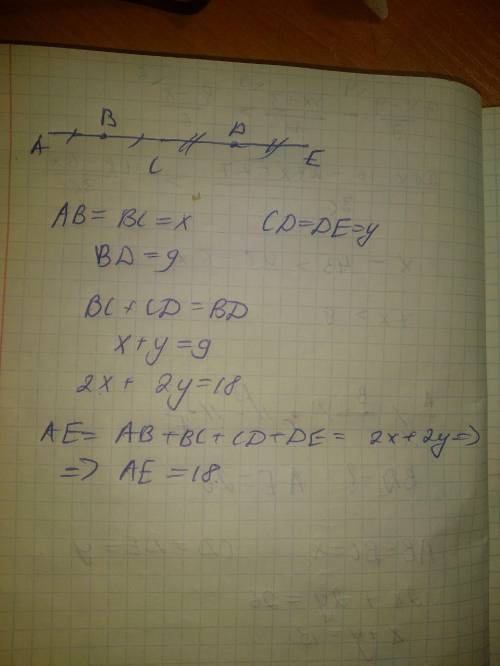 A B C D E
AB = BC = x CD = DE = y
BD = 9
BC + CD = BD
x + y = 9
2x + 2y = 18
AE = AB + BC + CD + DE = 2x + 2y =>
=> AE = 18.